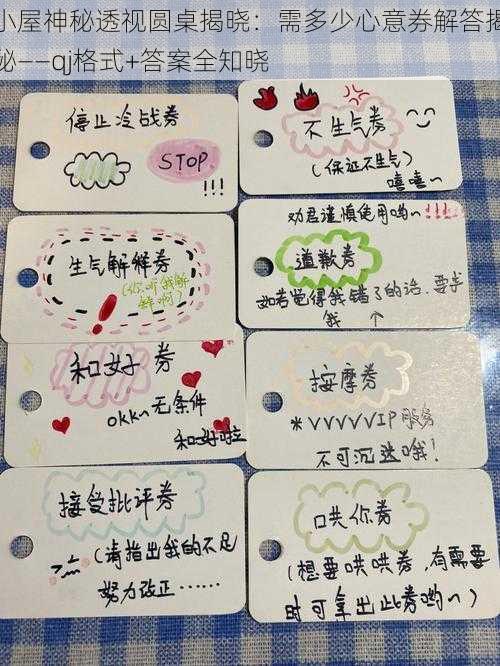 小屋神秘透视圆桌揭晓：需多少心意券解答揭
秘——qj格式+答案全知晓
停止冷战券
STOP
!!!
不生气券
(保证不生气)
嘻嘻~
生气解释券
(你听我解
释啊)
劝君谨慎使用哟~!!!!
道歉券
如若觉得我错了的话，要求
我 ↑
和好 券
okk~无条件
和好可立
按摩券
*VVVVVIP服务
不可沉迷哦！
接受批评券
(请指出我的不足
努力改正……
哄你券
(想要哄哄券，有需要
时可拿出此券哟~)